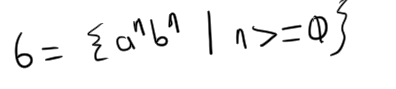 6 = {aⁿbⁿ | n >= 0}